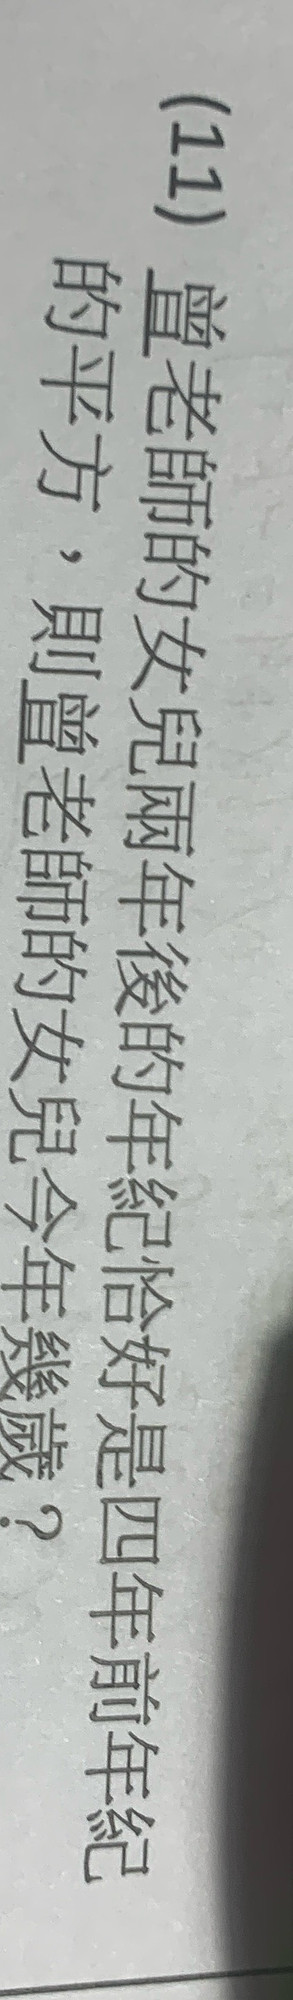 (11) 曾老師的女兒兩年後的年紀恰好是四年前年紀
的平方，則曾老師的女兒今年幾歲？